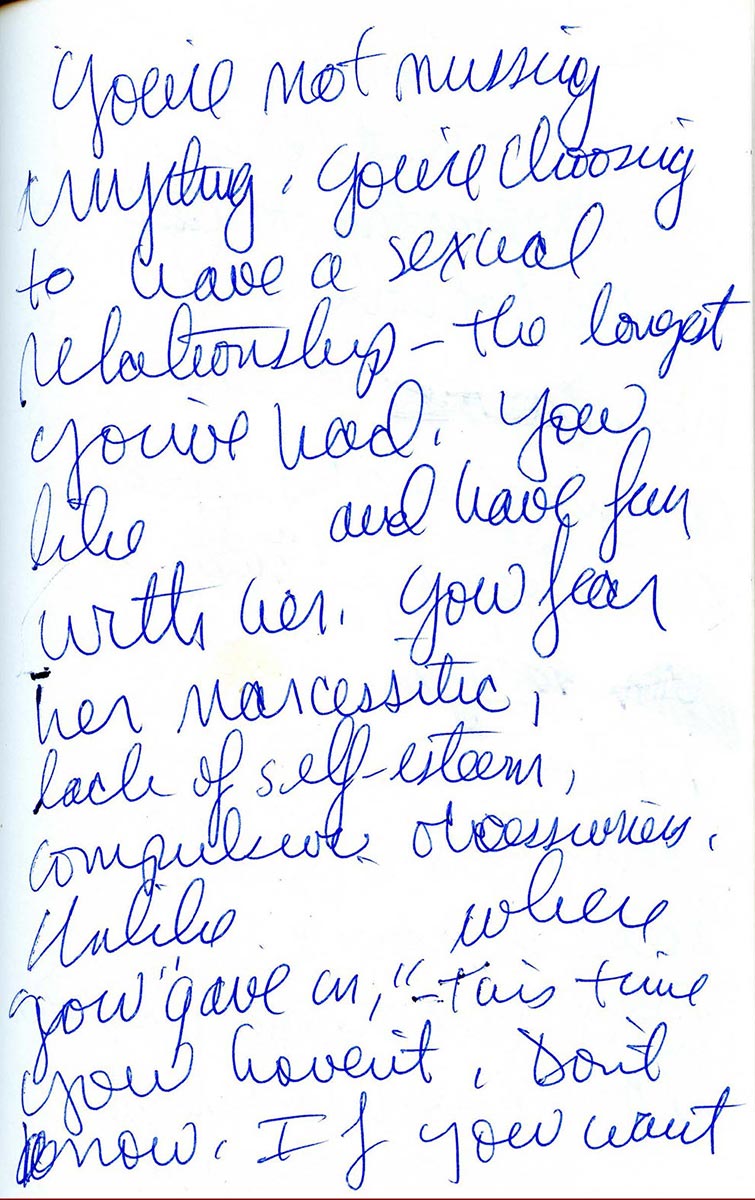 You're not missing
anything. You're choosing
to have a sexual
relationship – the longest
you've had. You
like and have fun
with her. You fear
her narcessitic,
lack of self-esteem,
compulsive obsessiveness.
Unlike where
you "gave in," – this time
you haven't. Don't
know. If you want